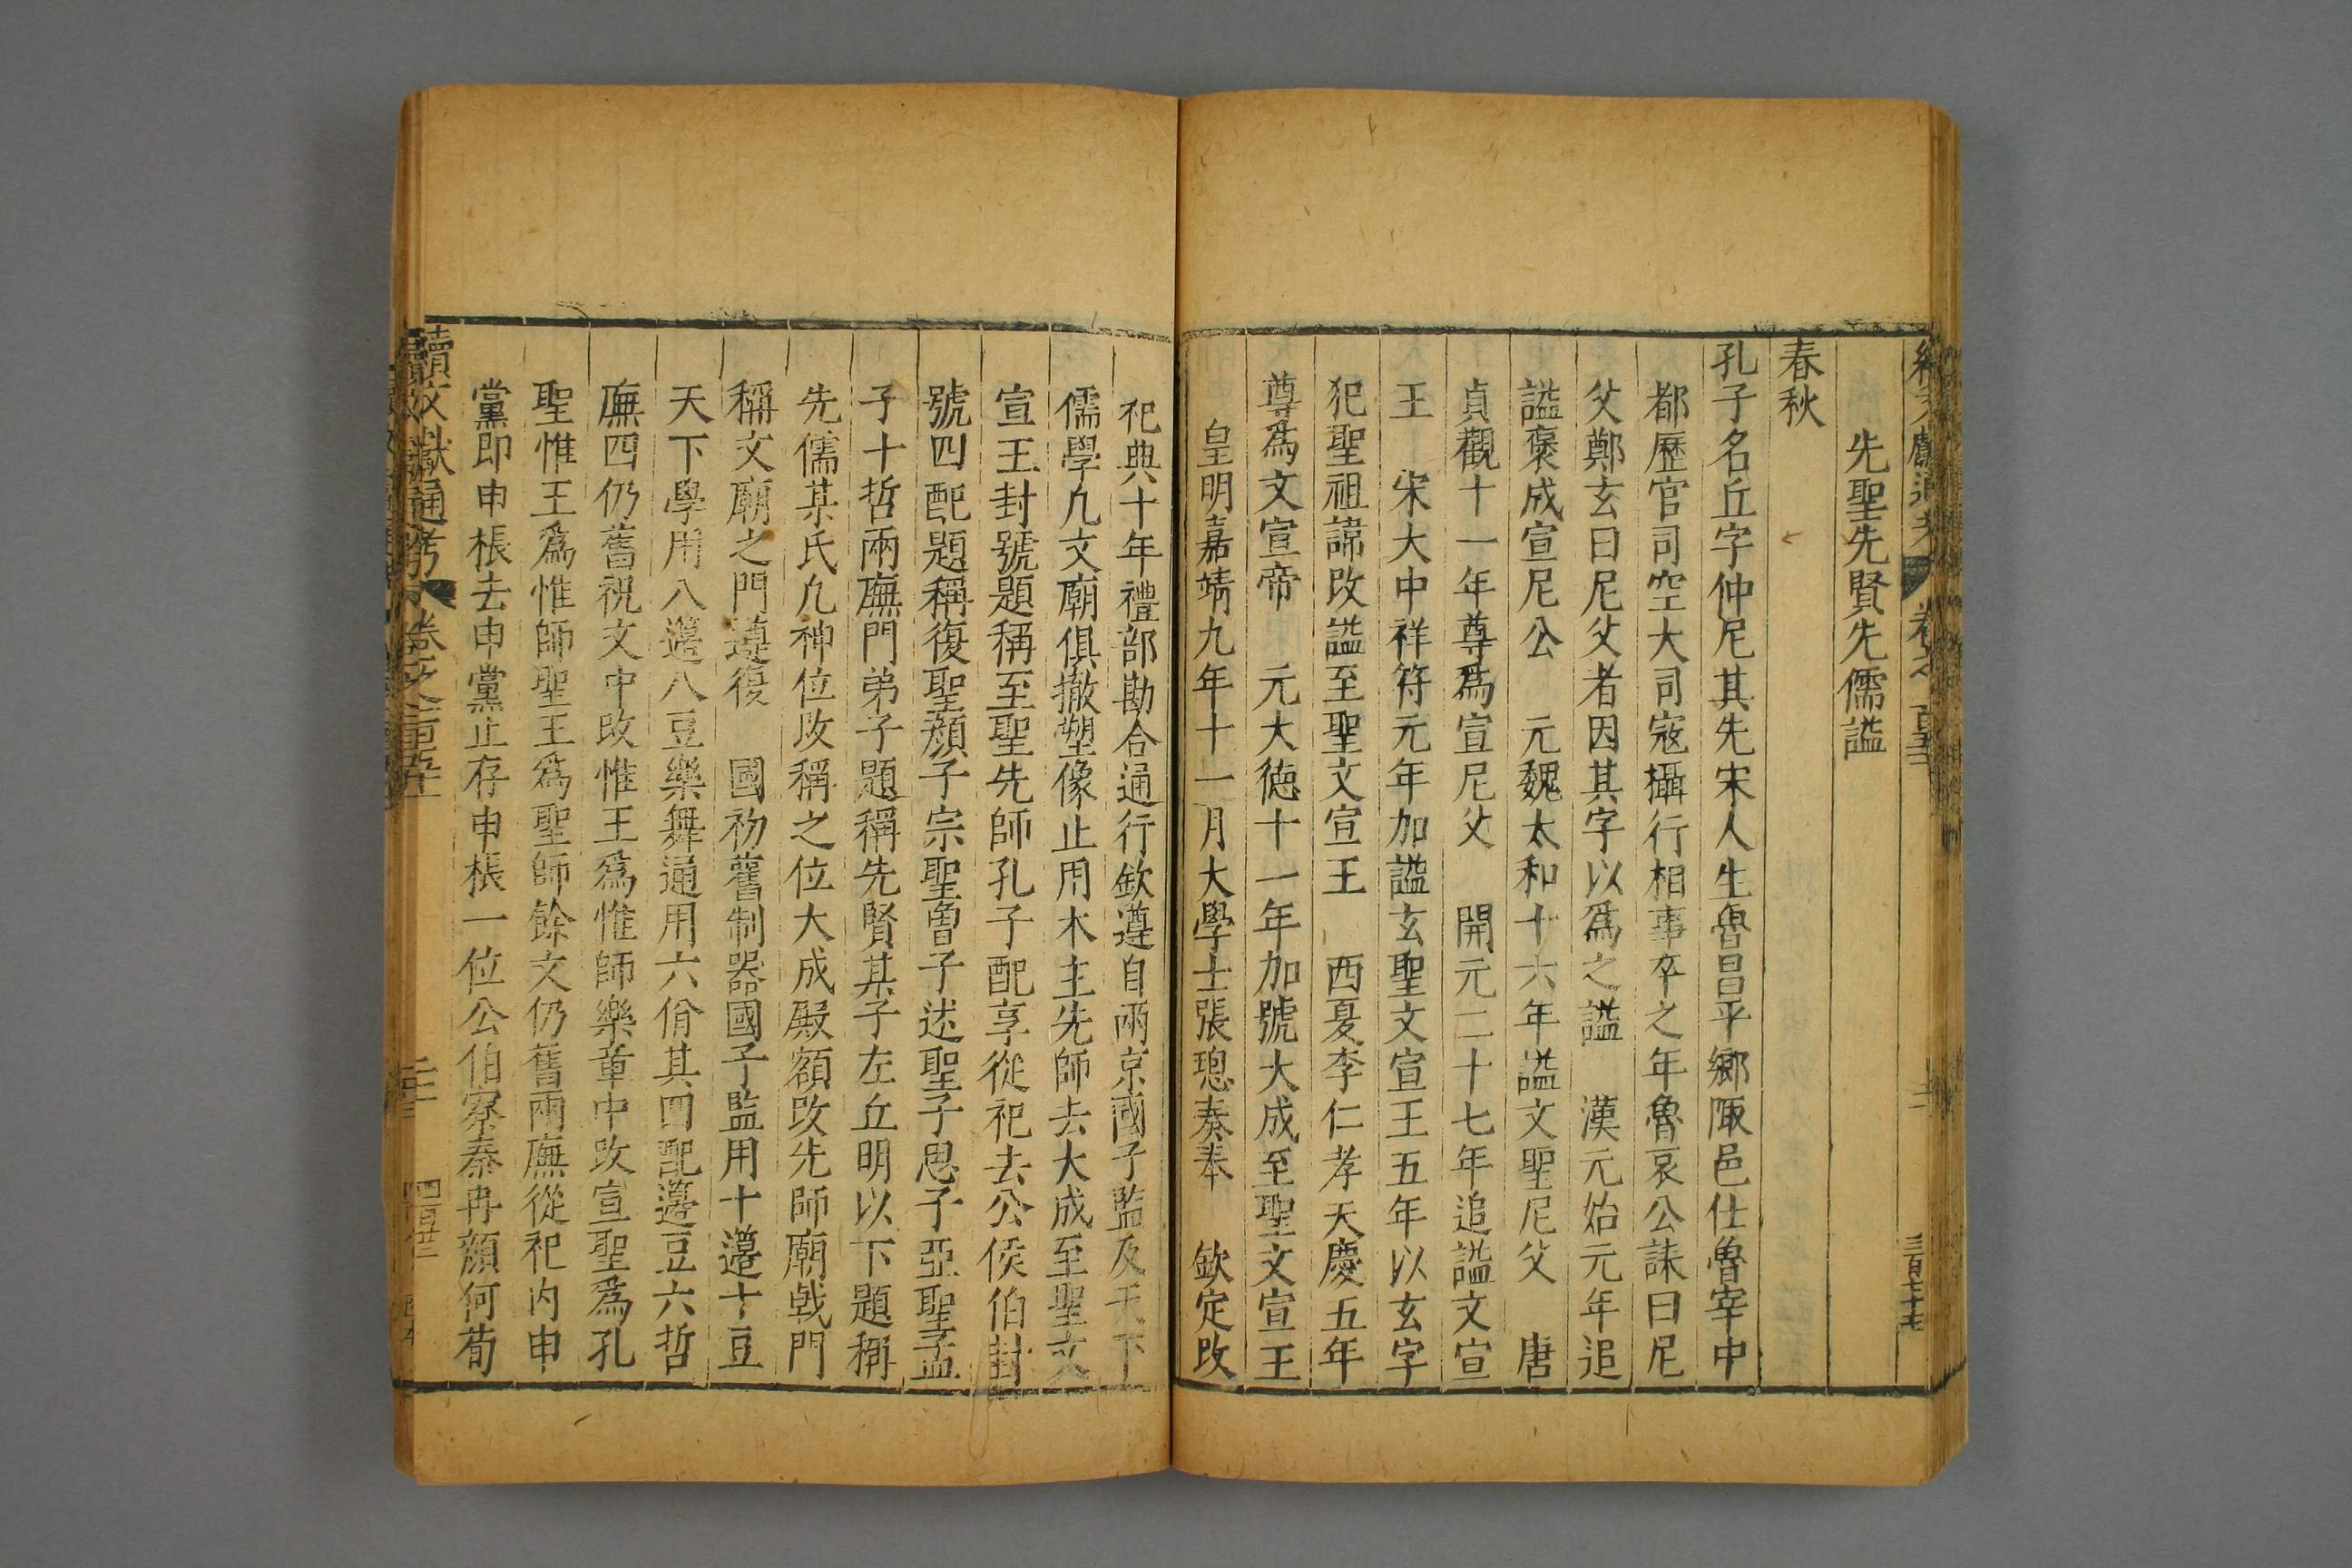 先聖先賢先儒謚
春秋
孔子名丘字仲尼其先宋人生魯昌平鄉陬邑仕魯宰中
都歷官司空大司寇攝行相事卒之年魯哀公誄曰尼
父鄭玄曰尼父者因其字以爲之謚　漢元始元年追
謚褒成宣尼公　元魏太和十六年謚文聖尼父　唐
貞觀十一年尊爲宣尼父　開元二十七年追謚文宣
王　宋大中祥符元年加謚玄聖文宣王五年以玄字
犯聖祖諱改謚至聖文宣王　西夏李仁孝天慶五年
尊爲文宣帝　元大德十一年加號大成至聖文宣王
皇明嘉靖九年十一月大學士張璁奏奉　欽定改
祀典十年禮部勘合通行欽遵自兩京國子監及天下
儒學凢文廟俱撤塑像止用木主先師去大成至聖文
宣王封號題稱至聖先師孔子配享從祀去公侯伯封
號四配題稱復聖顏子宗聖曾子述聖子思子亞聖孟
子十哲兩廡門弟子題稱先賢某子左丘明以下題稱
先儒某氏凢神位改稱之位大成殿額改先師廟戟門
稱文廟之門遵復　國初舊制器國子監用十籩十豆
天下學用八籩八豆樂舞通用六佾其四配籩豆六哲
廡四仍舊祝文中改惟王爲惟師樂章中改宣聖爲孔
聖惟王爲惟師聖王爲聖師餘文仍舊兩廡從祀內申
黨即申棖去申黨止存申棖一位公伯寮秦冉顏何荀
續文獻通考　卷之